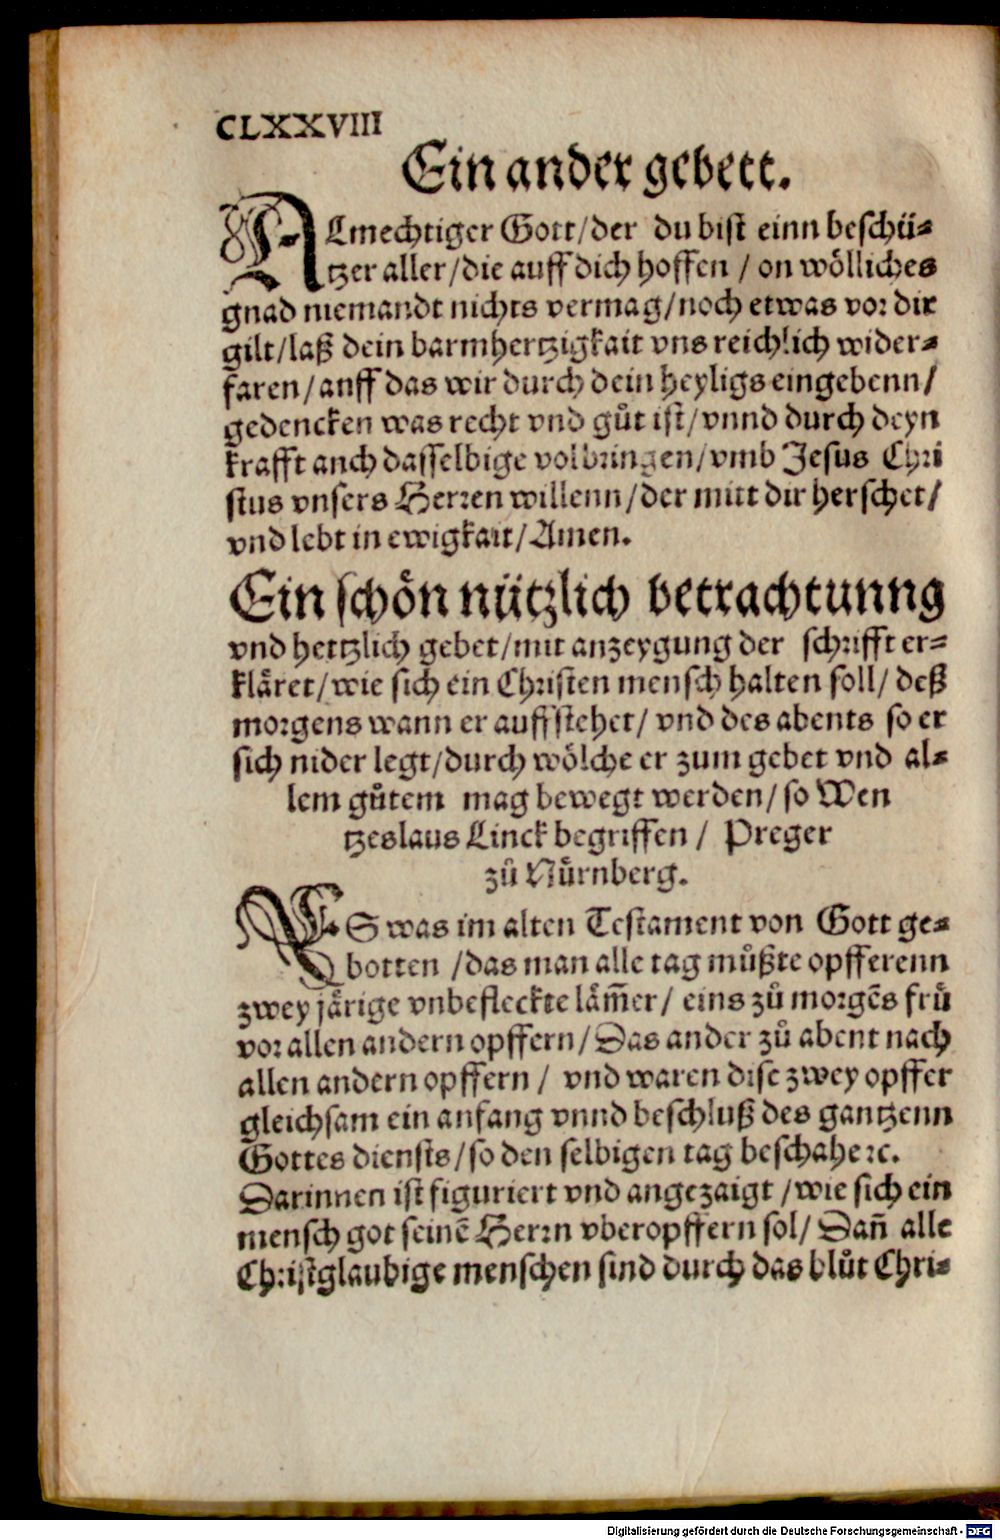 CLXXVIII
Ein ander gebett.
ALmechtiger Gott/der du bist einn beschü⸗
tzer aller/die auff dich hoffen / on wölliches
gnad niemandt nichts vermag/noch etwas vor dir
gilt/laß dein barmhertzigkait vns reichlich wider⸗
faren/anff das wir durch dein heyligs eingebenn/
gedencken was recht vnd gůt ist/vnnd durch deyn
krafft anch dasselbige volbringen/vmb Jesus Chri
stus vnsers Herren willenn/der mitt dir herschet/
vnd lebt in ewigkait/Amen.
Ein schön nützlich betrachtunng
vnd hertzlich gebet/mit anzeygung der schrifft er⸗
kläret/wie sich ein Christen mensch halten soll/ deß
morgens wann er auffstehet/ vnd des abents so er
sich nider legt/durch wölche er zum gebet vnd al⸗
lem gůtem mag bewegt werden/so Wen
tzeslaus Linck begriffen / Preger
zů Nürnberg.
ES was im alten Testament von Gott ge⸗
botten /das man alle tag müßte opfferenn
zwey järige vnbefleckte läm̃er/ eins zů morgēs frů
vor allen andern opffern/Das ander zů abent nach
allen andern opffern / vnd waren dise zwey opffer
gleichsam ein anfang vnnd beschluß des gantzenn
Gottes diensts/so den selbigen tag beschahe ꝛc.
Darinnen ist figuriert vnd angezaigt /wie sich ein
mensch got seinē Herrn vberopffern sol/ Dañ alle
Christglaubige menschen sind durch das blůt Chri⸗
Digitalisierung gefördert durch die Deutsche Forschungsgemeinschaft - DFG